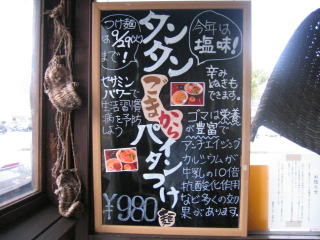 今年は
塩味！
タンタン
ごまから
パイタンつけ
麺
つけ麺
は9/29(火)
まで！
セサミン
パワーで
生活習慣
病を予防し
よう
¥980
辛み
ぬきも
できます。
ゴマは栄養
が豊富で
アンチエイジング
カルシウムが
牛乳の10倍
抗酸化作用
など多くの効
果があります。